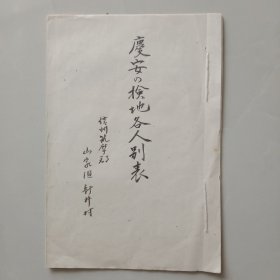 慶安の検地各人別表
信州筑摩郡
山家組 新井村